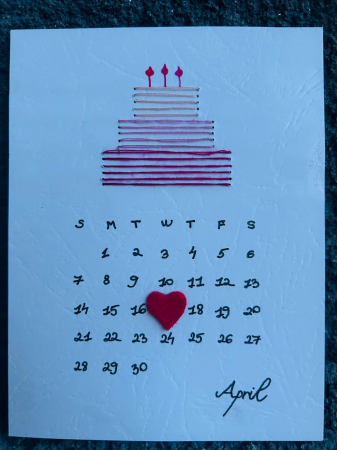 S M T W T F S
1 2 3 4 5 6
7 8 9 10 11 12 13
14 15 16 18 19 20
21 22 23 24 25 26 27
28 29 30
April